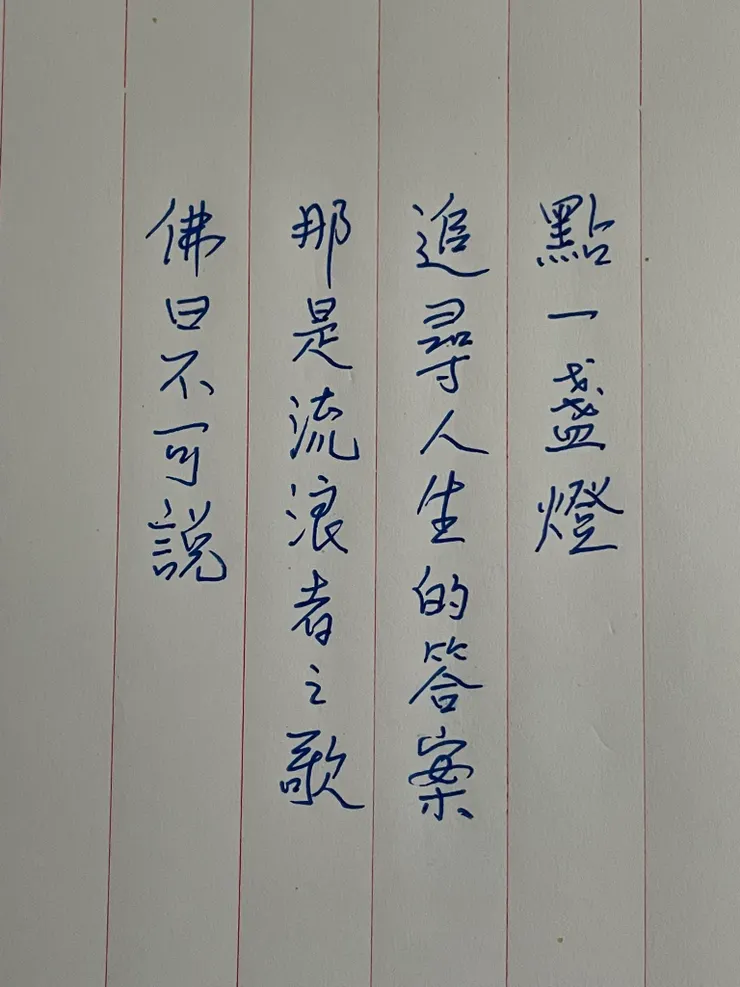 點一盞燈
追尋人生的答案
那是流浪者之歌
佛曰不可說